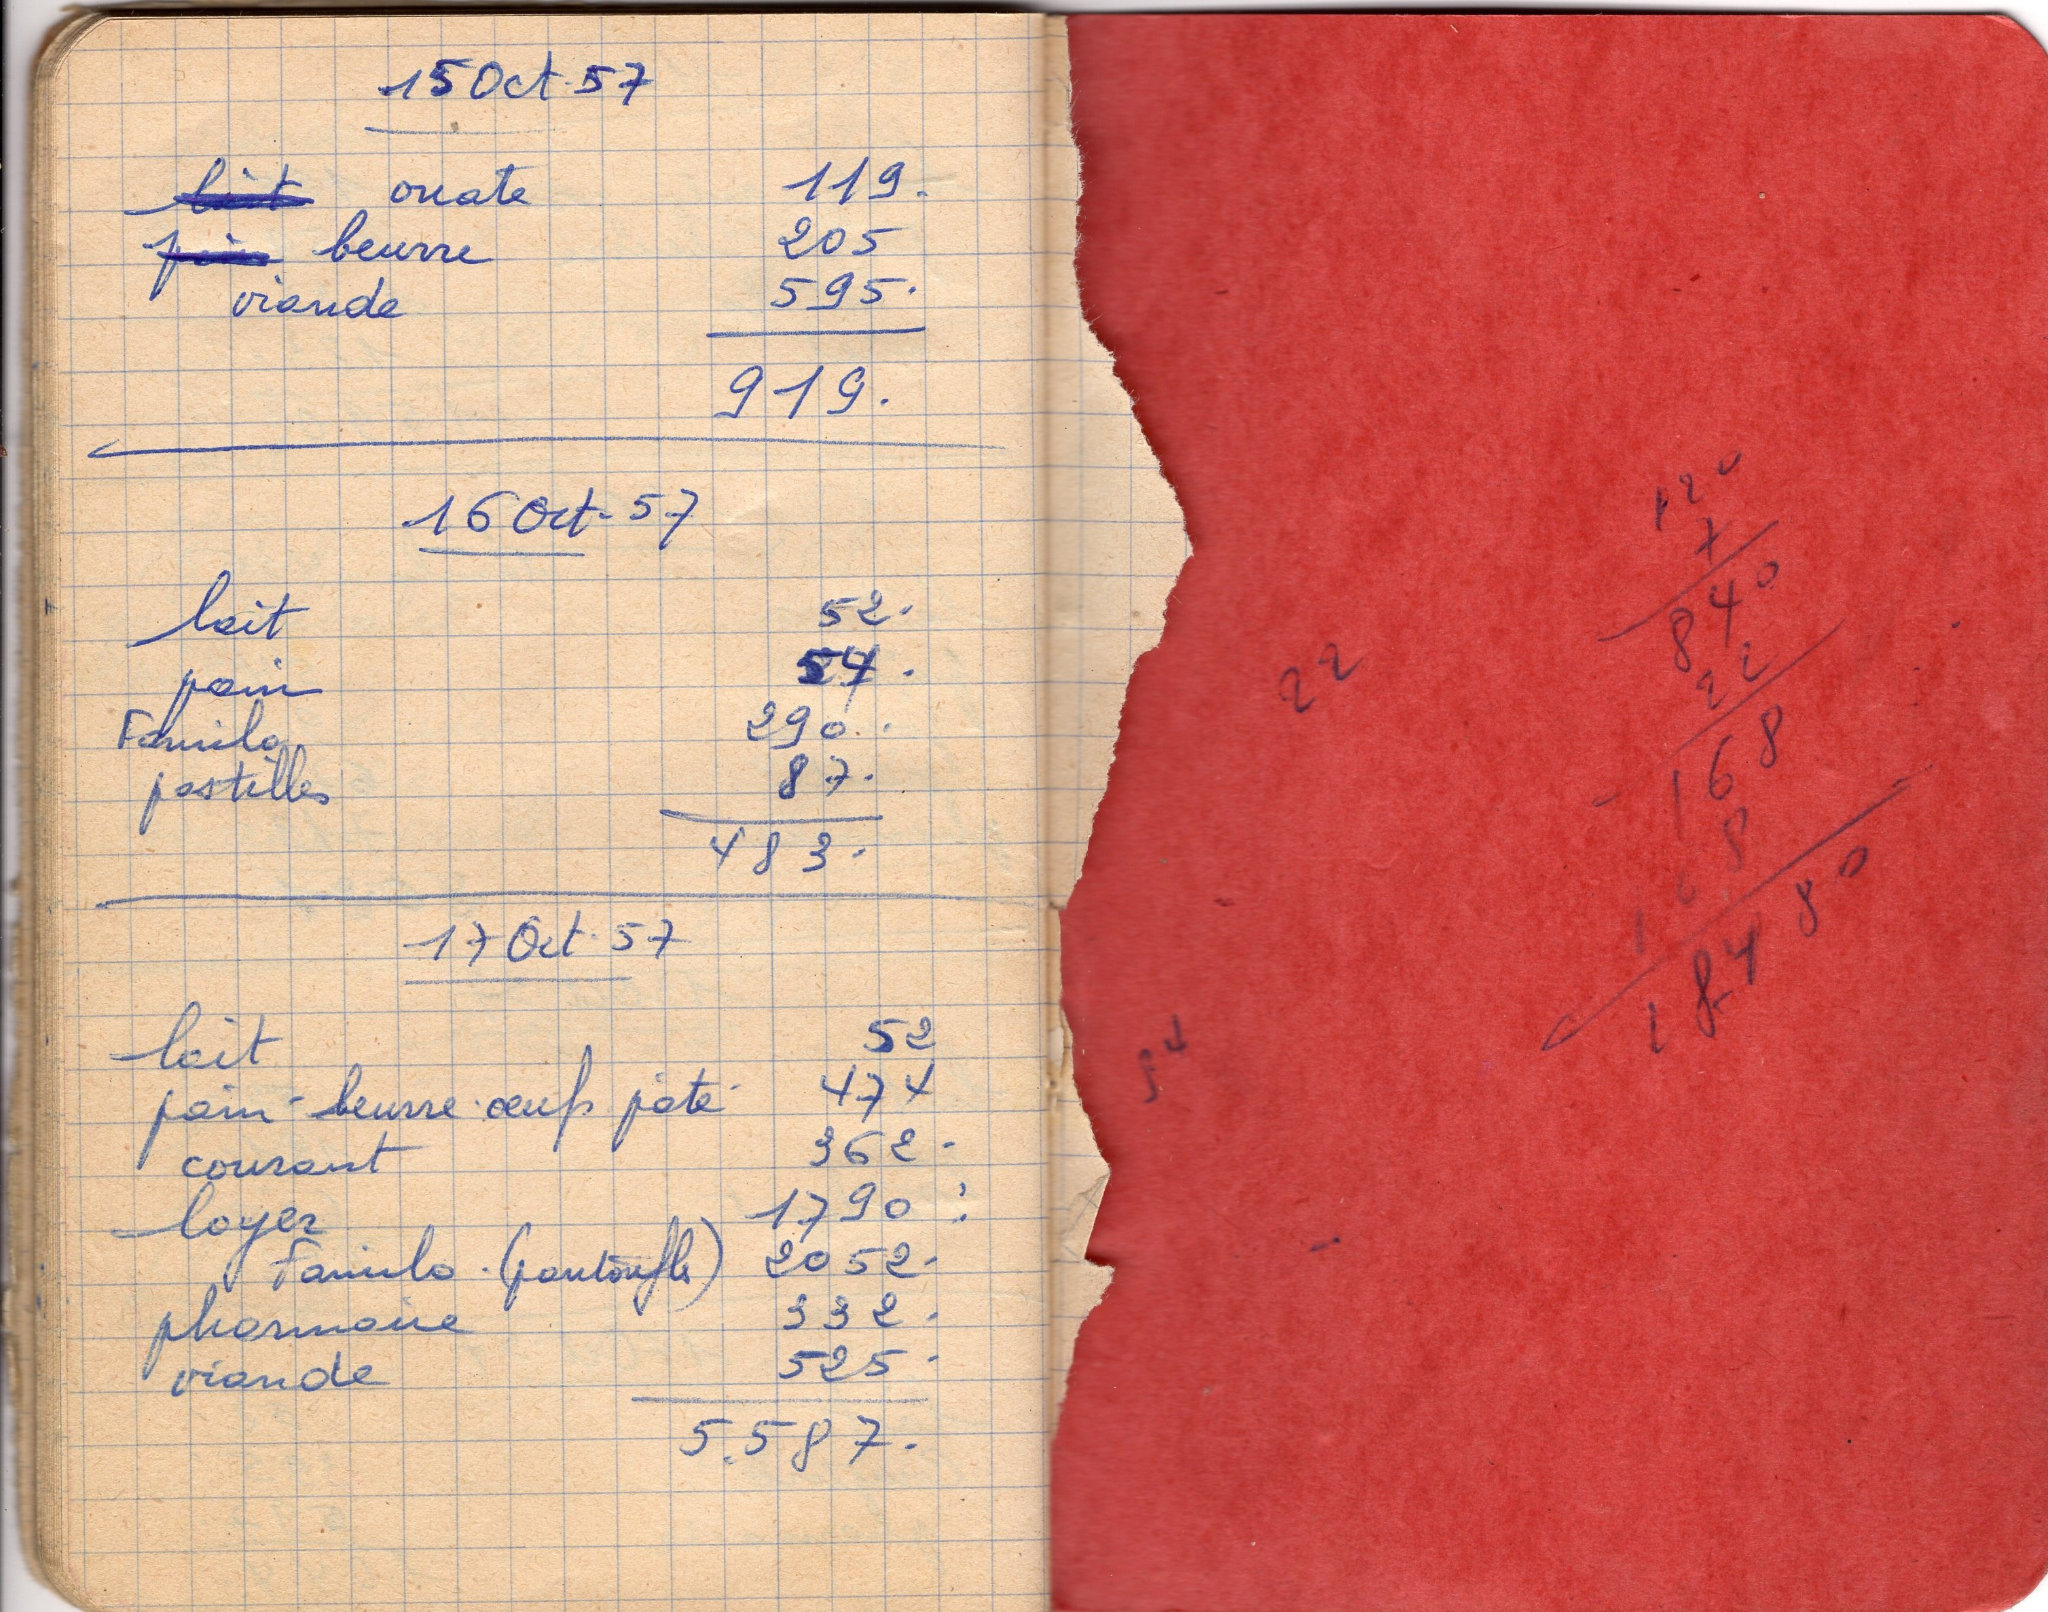 15 Oct. 57
lait ouate 119.
pain beurre 205
viande 595.
919.
16 Oct. 57
lait 52.
pain 54.
Familo 290.
pastilles 87.
483.
17 Oct. 57
lait 52
pain - beurre. oeufs pâté 474
courant 362.
loyer 1790.
Familo. (pantoufle) 2052.
pharmacie 332.
viande 525.
5.587.
120
7
840
22
22
168
168
18480
54